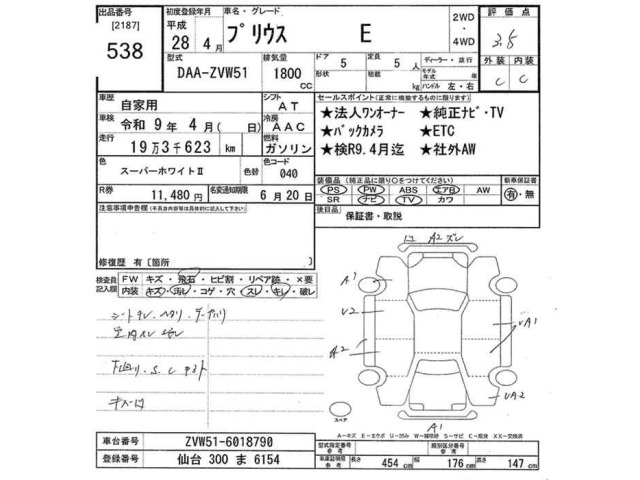 出品番号 初度登録年月 車名・グレード 2WD・4WD 評価点
[2187] 538 平成 28年 4月 プリウス E 3.5
型式 排気量 ドア形状 定員 ディーラー・並行 外装 内装
DAA-ZVW51 1800cc 5 5人 積載 kg モデル年式 年式 ハンドル 左・右 C C
車歴 自家用 シフト AT セールスポイント(正常に機能するものに限ります)
車検 令和 9年 4月( 日) 冷房 AAC ★法人ワンオーナー ★純正ナビ・TV
走行 19万3千623km 燃料 ガソリン ★バックカメラ ★ETC
★検R9.4月迄 ★社外AW
色 スーパーホワイトⅡ 色替 色コード 040
装備品(純正品に限り○をつけてください) 新車保証書
PS PW ABS エアB AW 有・無
SR ナビ TV カワ
R券 11,480円 名変通知期限 6月20日
後日品 保証書・取説
注意事項申告欄(※具体的内容等は具体的に記入して下さい)
修復歴 有[箇所 ]
検査員記入欄 FW キズ・飛石・ヒビ割・リペア跡・×要
内装 キズ・汚レ・コゲ・穴・スレ・キレ・破レ
A2 ズレ
A1
U2
UA1
A2
UA2
A1
スペア
A-キズ E-エクボ U-凹み W-補修跡 S-サビ C-腐分 XX-交換済
車台番号 ZVW51-6018790
型式指定番号 参考 類別区分番号 参考
登録番号 仙台 300 ま 6154
車庫証明用 参考 長さ 454cm 幅 176cm 高さ 147cm